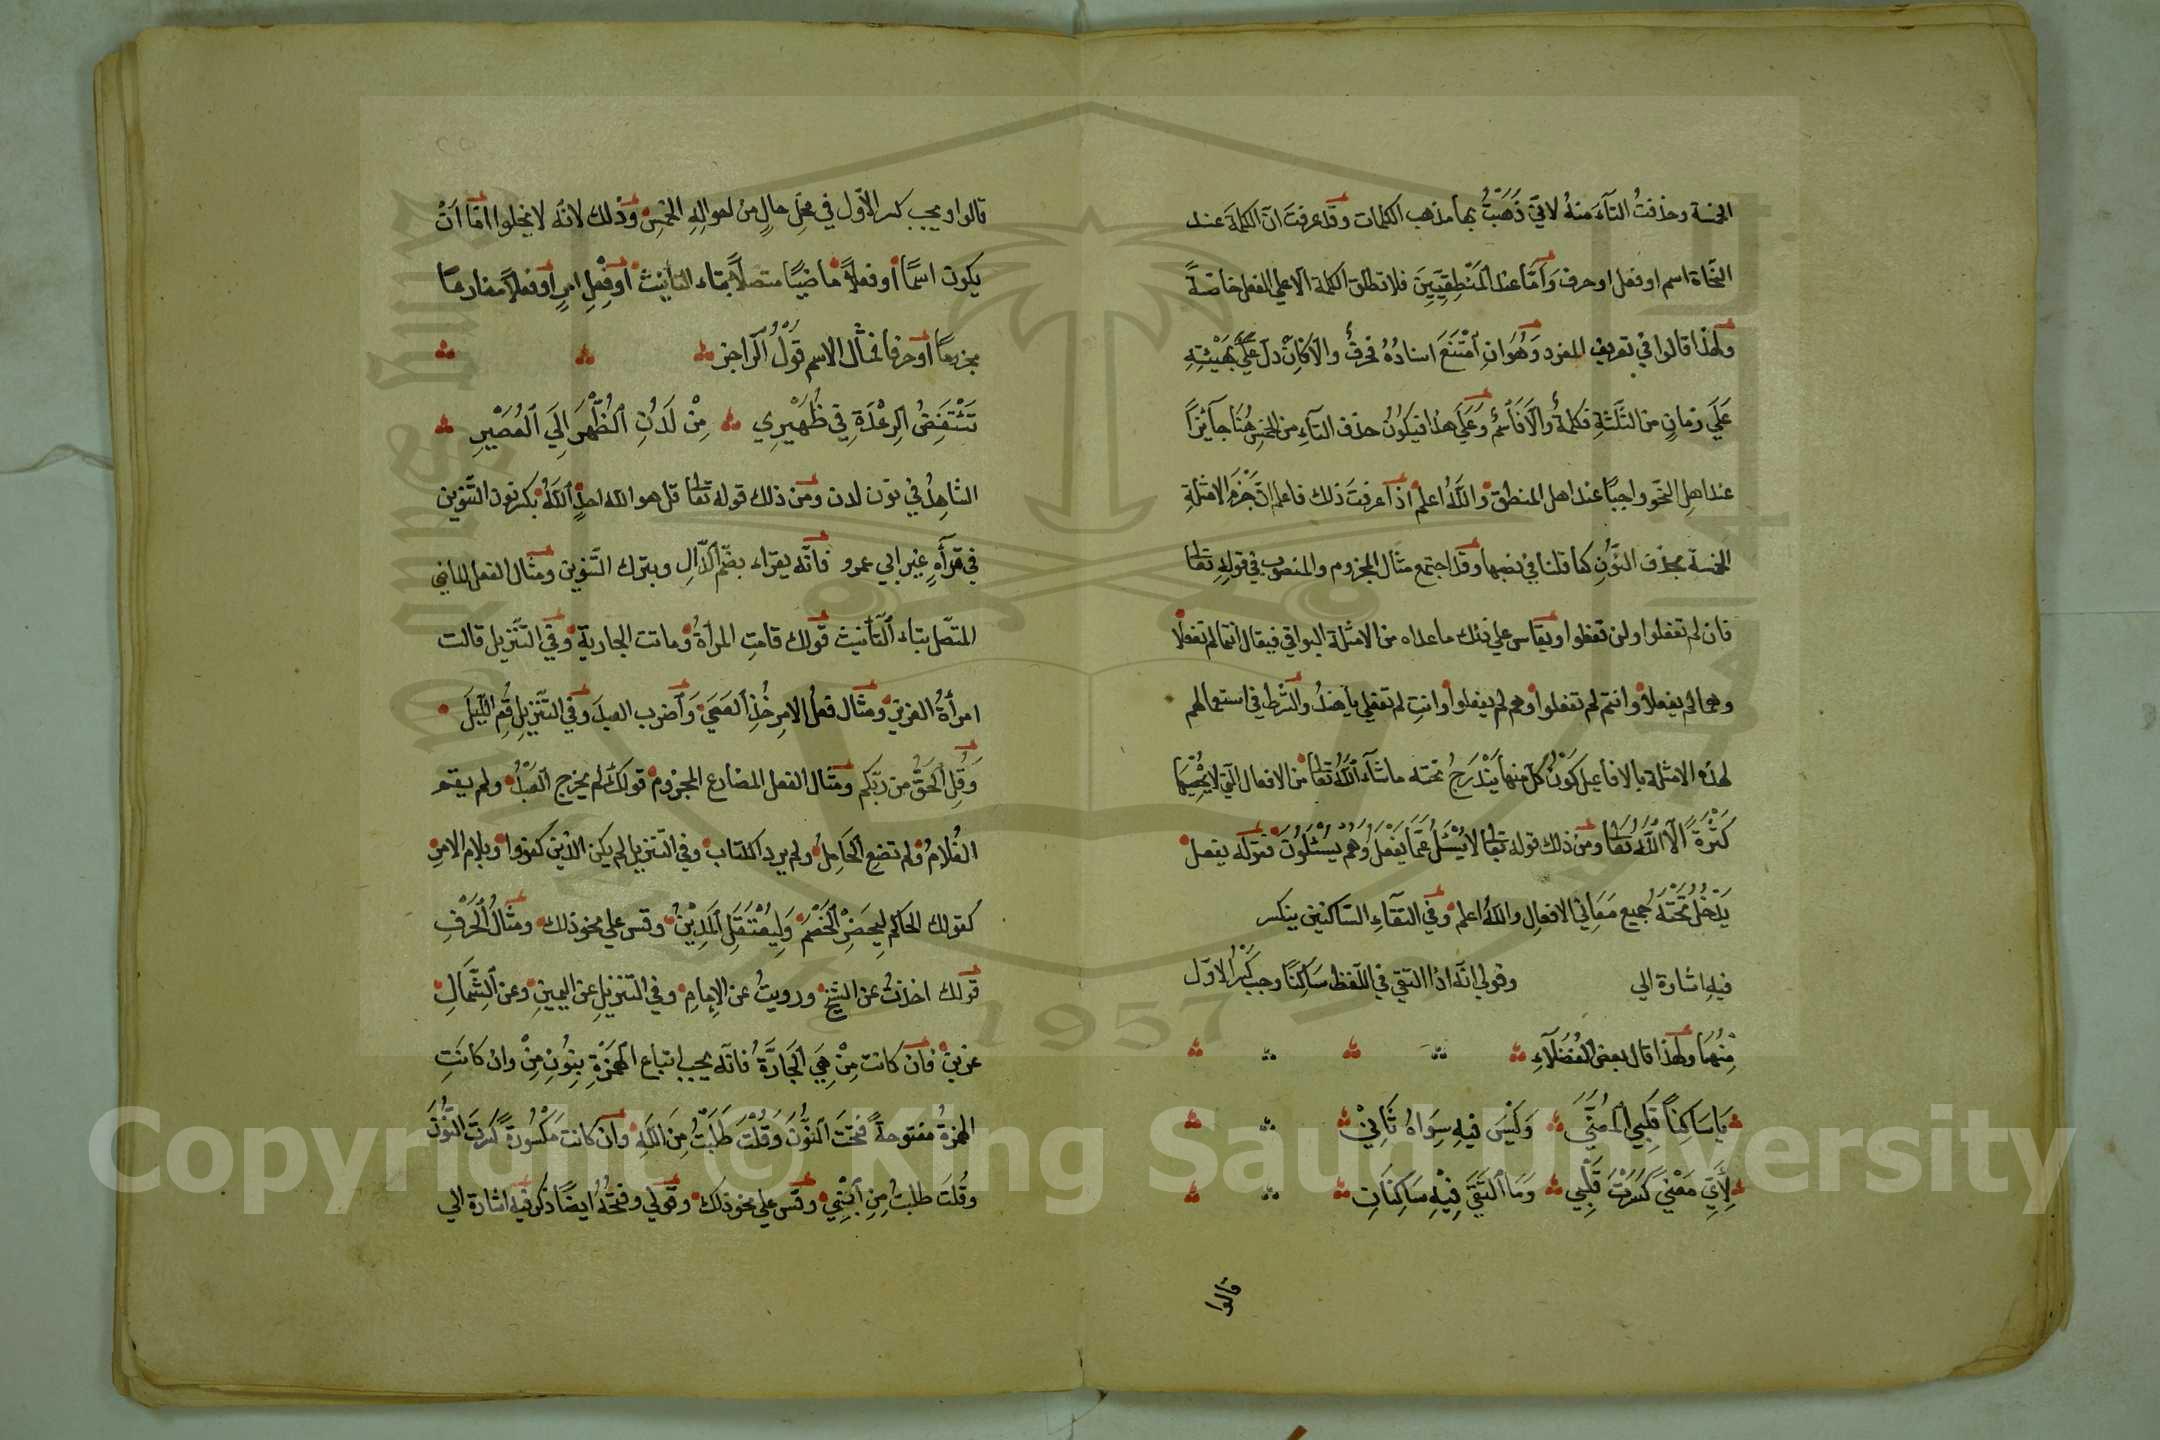 الخمسة وحذفتُ التآءَ منهُ لانّي ذَهَبْتُ بها مذهب الكلمات وقد عرفتَ انّ الكلمةَ عند
النّحاة اسم او فعل او حرف وَامَّا عند اَلمَنْطِقِيِّينَ فلا تطلق الكلمة الا علي الفعل خاصّةً
ولهذا قالوا في تعريف المفرد وَهُوَ انِ اَمْتَنَعَ اسنادُهُ فحرفٌ والّا فَاِنْ دلّ عَلَيَّ بِهَيْئَتِهِ
عَلَي زمانٍ من الثَّلَثَةِ فكلمةٌ والّا فَاَسْمٌ وَعَلَي هذا فيكُونُ حذف التآءِ من الخمسِ هُنَا جآئزاً
عند اهلِ النّحو واجبًا عند اهل المنطق واللّهُ اعلم اذا عرفتَ ذلك فاعلم انّ جَزْمَ الامثلةِ
الخمسة بحذف النُّونِ كما قلنا في نصبها وقد اجتمع مثال المجزوم والمنصوب في قولِهِ تعَا
فان لم تفعلوا ولن تفعلوا ويقاس علي ذلك ما عداه من الامثلة البواقي فيقال انتما لم تفعلا
وهما لم يفعلا وانتم لم تفعلوا وهم لم يفعلوا وانتِ لم تفعلي ياهندُ والشّرط في استعمالهم
لهذه الامثلة بالافاعيل كَوْنُ كلّ منها يَنْدَرَجُ تحته ماشآء اللّهُ تعَا من الافعال الّتي لا يُحْصِيهَا
كَثْرَةً الّا اَللّهُ تعَا ومن ذلك قوله تعا لا يُسْئَلُ عَمَّا يَفْعَلُ وَهُم يُسْئَلُونَ فقوله يفعل
يَدْخُلُ تَحْتَهُ جميع مَعَاني الافعال واللّهُ اعلم وفي التقآءِ السّاكنين ينكسر
فيه اشارة الي وقولي انّه اذا التقي في اللّفظ سَاكِنَا وجب كَسْرُ الاوّل
مِنْهُمَا ولهذا قال بعض اَلفُضَلآءِ
يَا سَاكِنًا قَلْبِي اَلمُعَنَّي وَلَيْسَ فيهِ سِوَاهُ ثَانِيْ
لِأَيِّ مَعْنيً كَسَرْتَ قَلْبِي وَمَا اَلتَقَي فِيْهِ سَاكِنَانِ
قالوا
قالوا ويجب كسر الاوّل في محلِّ حالٍ من احوالِهِ الخمسِ وذلك لانّه لا يخلوا امّا اَنْ
يكون اسمًا او فعلاً ماضيًا متصلاً بتاء التأنيث او فِعْلِ امرٍ او فعلاً مضارعًا
مجزومًا او حرفا فمثال الاسم قَوْلُ الرّاجز
تَنْتَفِضُ اَلرِعْدَةُ فِي ظُهَيْرِي مِنْ لَدُنِ اَلظُّهْرِ اِلَي اَلعُصَيْرِ
الشّاهدُ في نون لدن ومن ذلك قوله تعَا قل هو الله احدٍ اَللّهُ بكسر نون التّنوين
في قرآءَةِ غيرِ ابي عمرو فانّه يقراء بضمّ الدّالِ وبترك التّنوين ومثال الفعل الماضي
المتّصل بتاء اَلتّأنيث قولك قامتِ المرأةُ وماتت الجارية وفي التّنزيل قالت
امرأةُ العزيزِ ومثال فعل الامر خُذِ اَلعَمَي وَاَضرب العبدَ وفي التّنزيل قُمِ اللّيلَ
وَقُلِ اَلحَقُّ من ربّكم ومثال الفعل المضارع المجزوم قولك لم يخرج اَلعبدُ ولم يقم
الغُلامُ ولم تضع اَلحَامِلُ ولم يرد الكتاب وفي التّنزيل لم يكن الّذين كفروا وبلام الامرِ
كقولك الحاكم لِيحضرِ الخَصْمَ وَلِيُعْتَقَلِ اَلمَدِيْنُ وقس علي نحو ذلك ومثالُ اَلحَرْفِ
قولك اخذتُ عن الشّيخ ورويتُ عن الإمامِ وفي التنزيل عن اليمينِ وعن اَلشِّمَالِ
عزين فان كانت مِنْ هِيَ اَلجَارَّةُ فانّه يجب اتباع اَلهَمْزَةِ بِنُونِ مِنْ وان كانتِ
الهمزةُ مفتوحةً فتحَت اَلنُّونَ وَقُلْتَ طَلَبْتُ مِنَ اَللّهِ وان كانت مَكْسُورَةً كَسرتَ النُّونَ
وقُلتَ طلبتُ مِنِ اَبْنِي وقس علي نحو ذلك وقولي وفتحُهُ ايضًا ذكر فيه اشارة الي
Copyright © King Saud University
1957